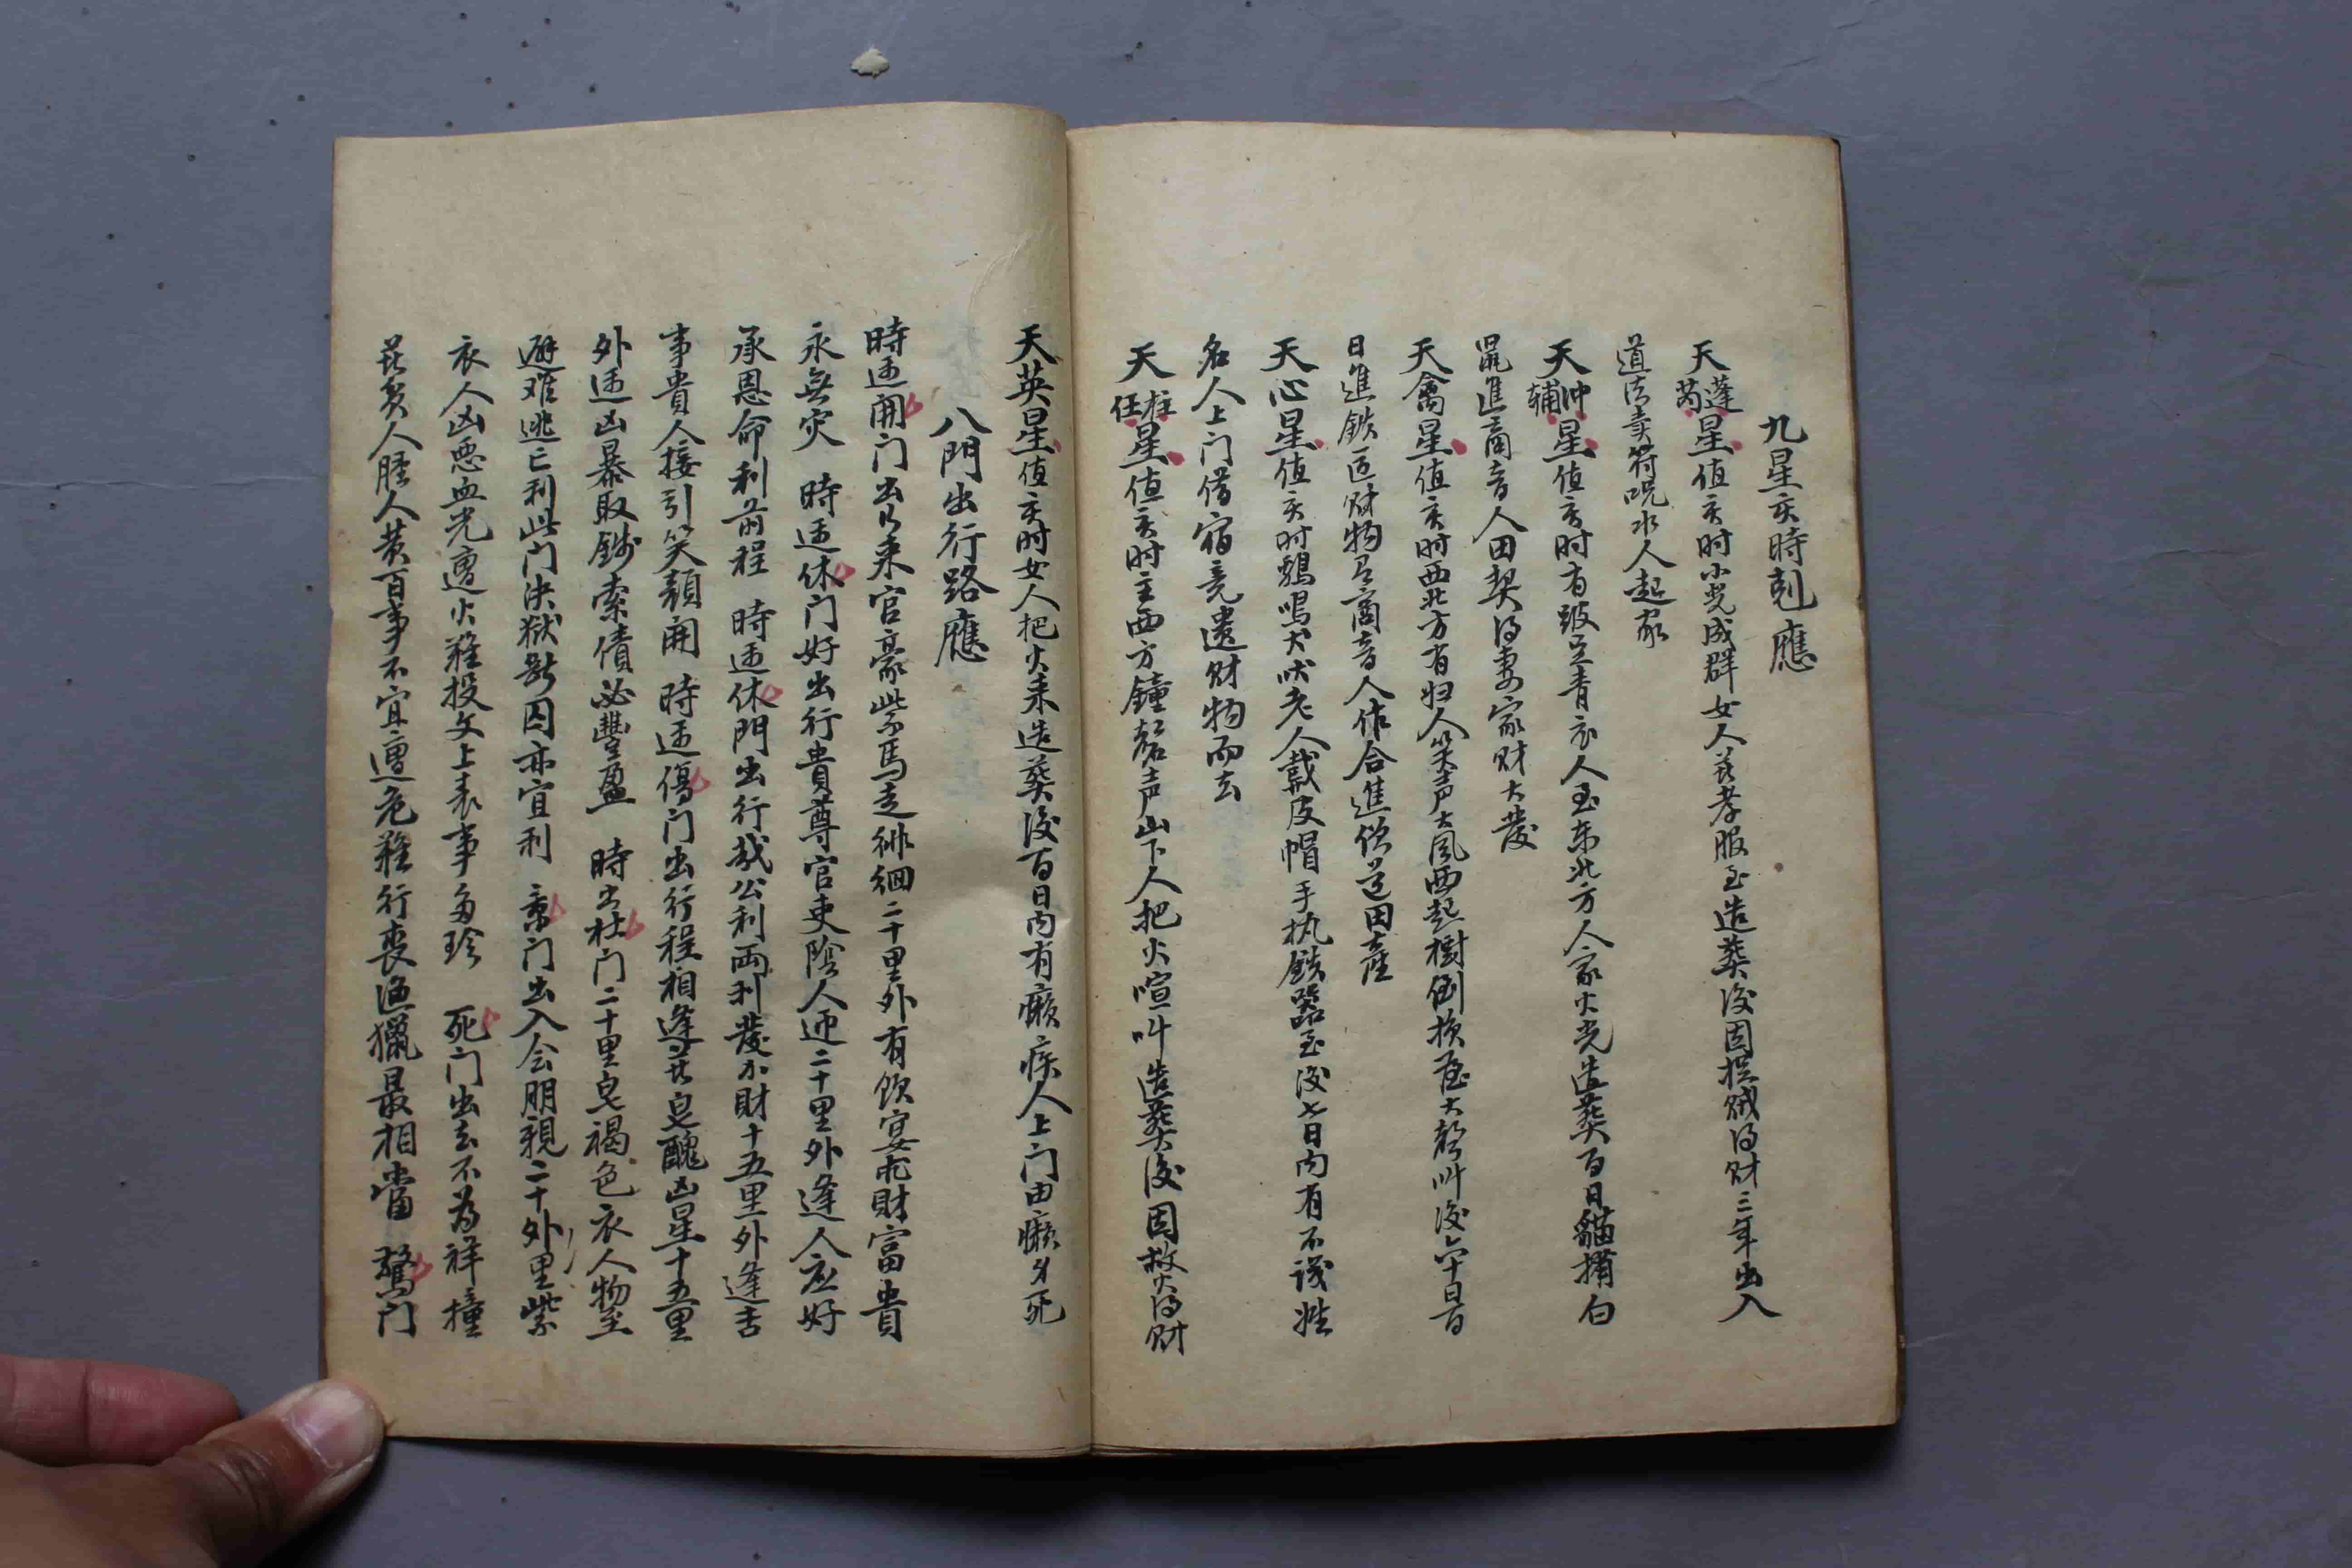 九星亥時剋應
天蓬芮星值亥时小児成群女人着孝服至造葬后因捉贼得财三年出入
道法卖符呪水人起家
天冲辅星值亥时有跛足青衣人至东北方人家火光造葬百日貓捕白
鼠進商音人田契得妻家财大發
天禽星值亥时西北方有妇人笑声大風西起樹倒损屋大声叫後六十日百
日進鉄匠财物及商音人作合進僧道田產
天心星值亥时鷄鳴犬吠老人戴皮帽手执鉄器至後七日内有不识姓
名人上门借宿竟遗财物而去
天柱任星值亥时主西方鐘声山下人把火喧叫造葬後因救火得财
天英星值亥时女人把火来造葬後百日内有癩疾人上门由癩身死
八門出行路應
時逢開门出乃来官豪紫馬走徘徊二十里外有飲宴求財富貴
永無灾　時逢休门好出行貴尊官吏陰人迎二十里外逢人应好
承恩命利前程　時逢休門出行哉公利両利發小財十五里外逢吉
事貴人接引笑顏開　時逢傷门出行程相逢共皂醜凶星十五里
外逢凶暴取錢索債必豐盈　時出杜门二十里皂褐色衣人物至
避难逃亡利此门決狱断囚亦宜利　景门出入会朋親二十外里紫
衣人凶恶血光遭火難投文上表事多珍　死门出去不为祥撞
人黄百事不宜遭危難行喪漁獵最相當　驚门